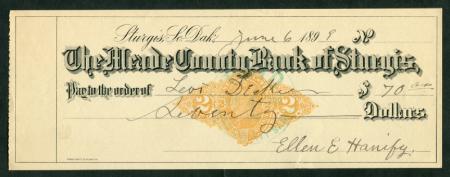 Sturgis, So. Dak. June 6 1898 No
The Meade County Bank of Sturgis,
Pay to the order of Levi Decker $ 70 00
Seventy Dollars
Ellen E Hanify.